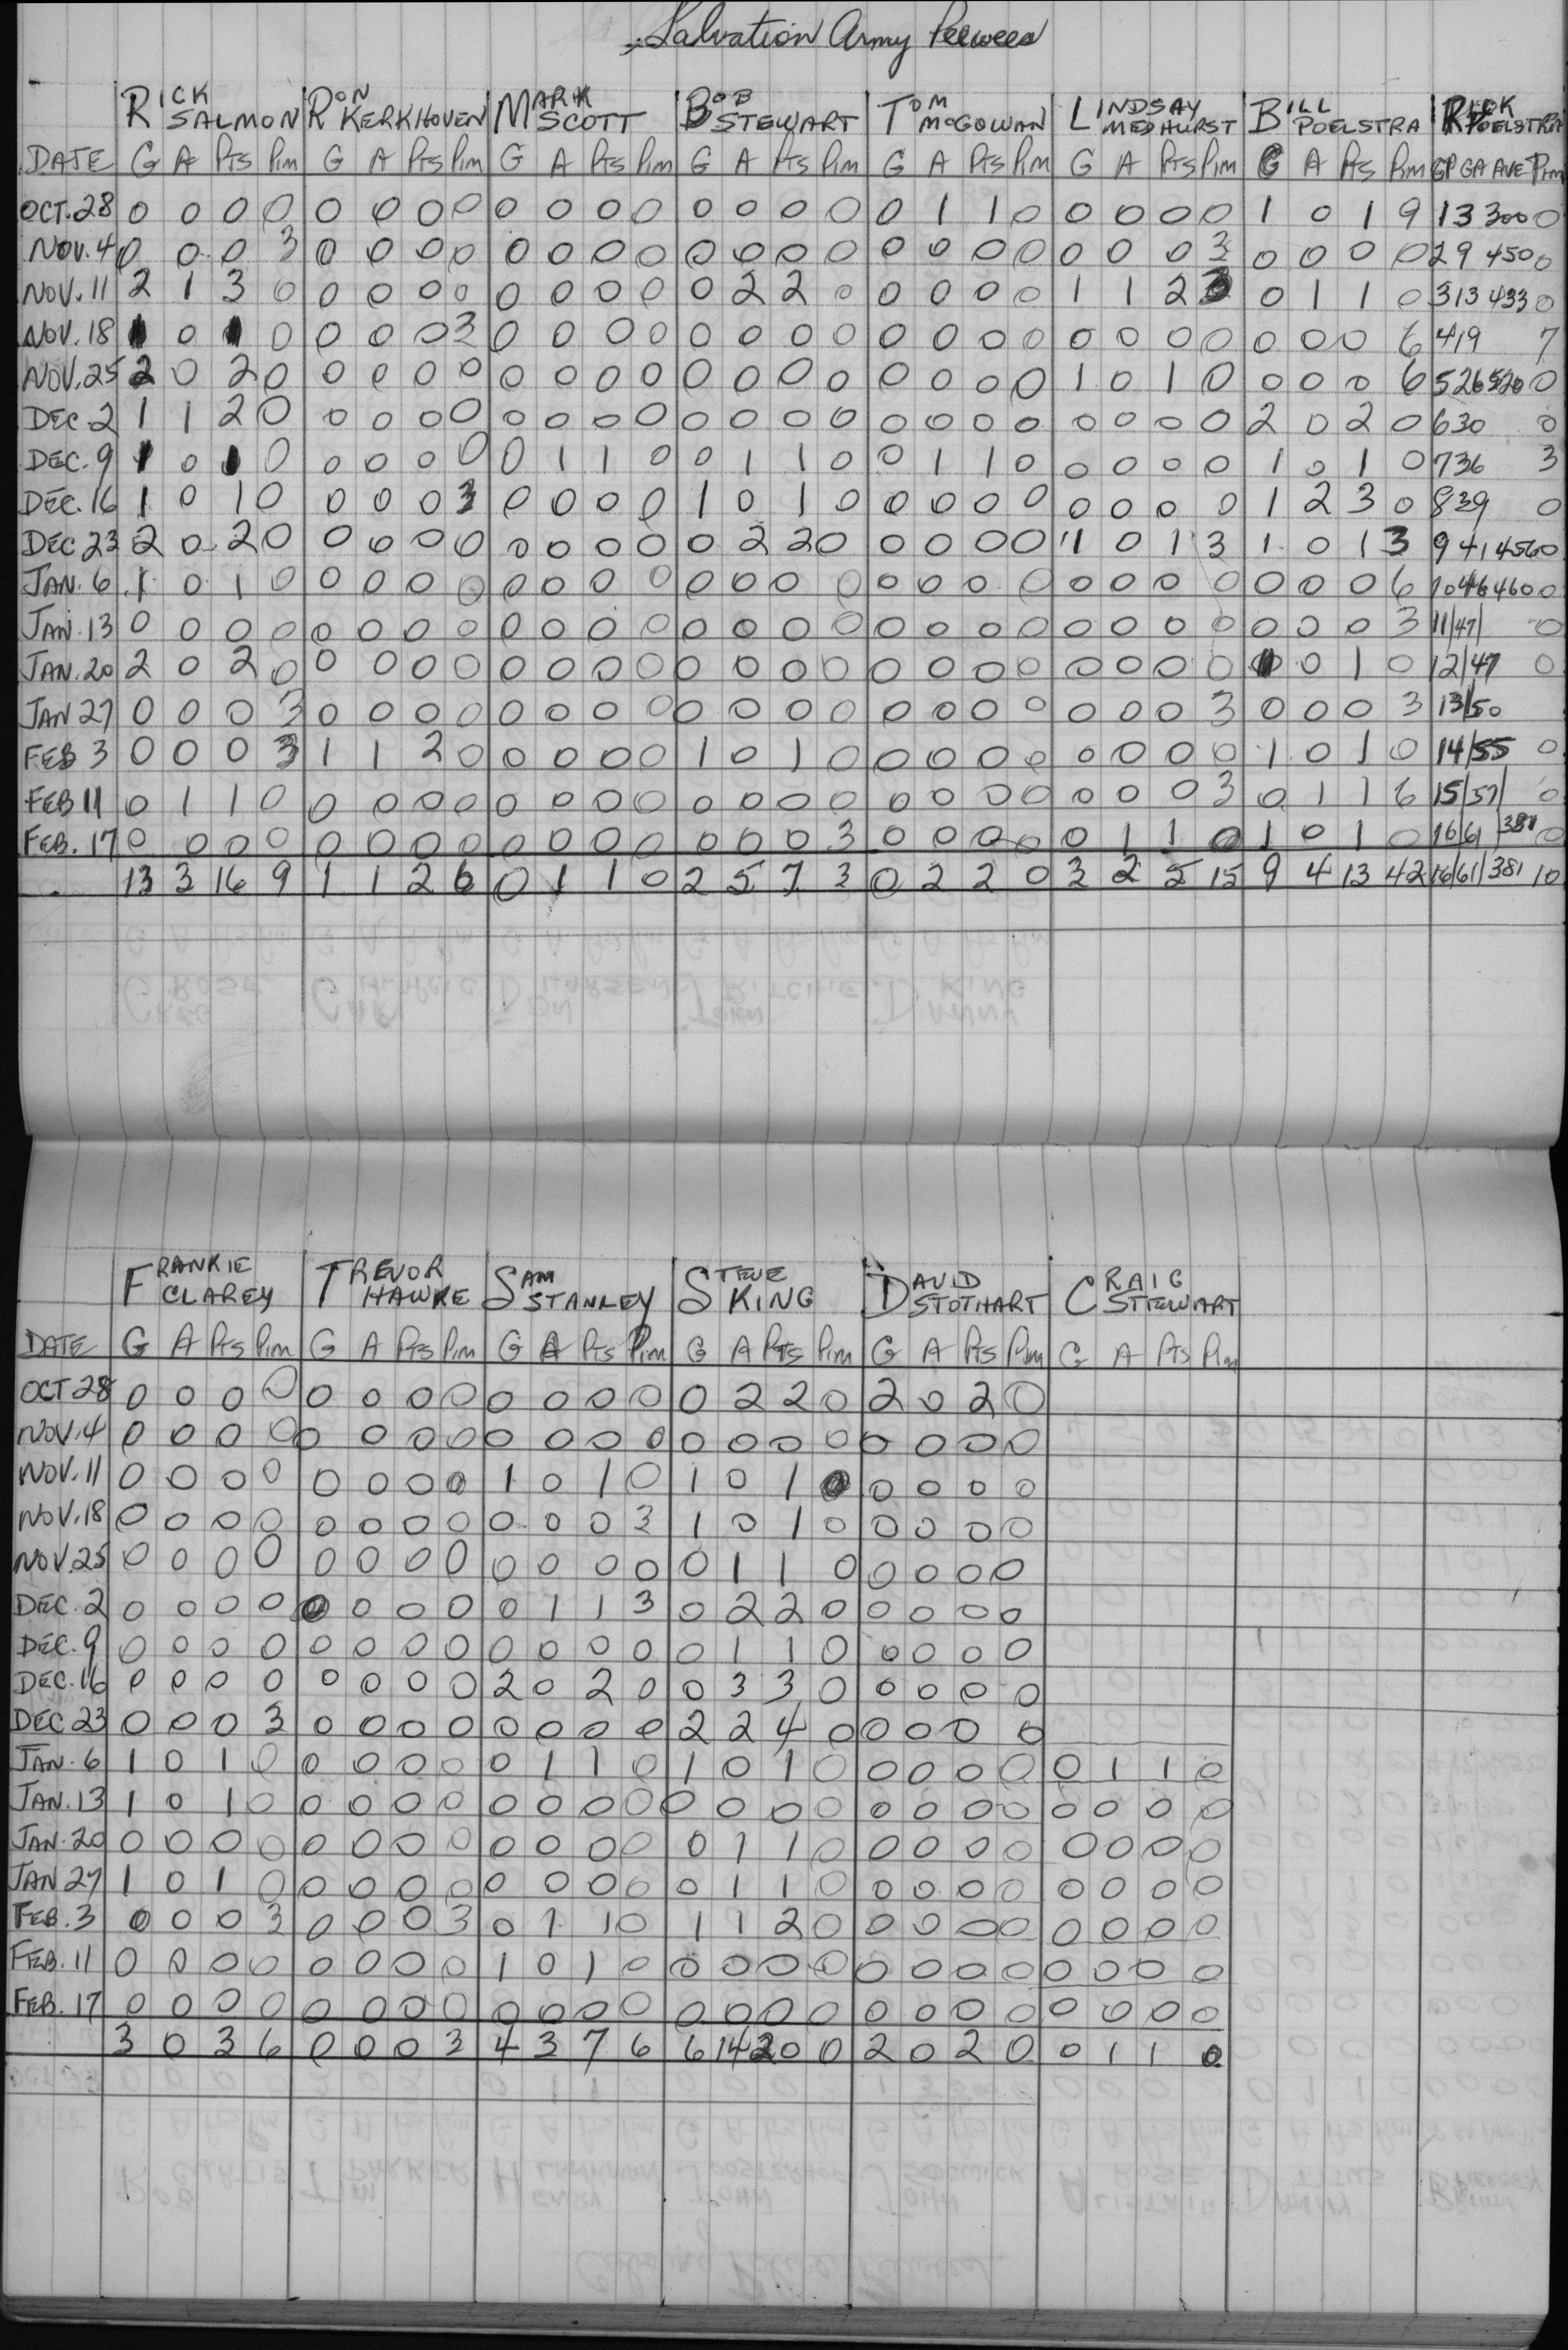 Salvation Army Peewees
RICK SALMON RON KERKHOVEN MARK SCOTT BOB STEWART TOM McGOWAN LINDSAY MEDHURST BILL POELSTRA RICK POELSTRA
DATE G A Pts Pim G A Pts Pim G A Pts Pim G A Pts Pim G A Pts Pim G A Pts Pim G A Pts Pim GP GA AVE Pim
OCT. 28 0 0 0 0 0 0 0 0 0 0 0 0 0 0 0 0 0 1 1 0 0 0 0 0 1 0 1 9 1 3 300 0
NOV. 4 0 0 0 3 0 0 0 0 0 0 0 0 0 0 0 0 0 0 0 0 0 0 0 3 0 0 0 0 2 9 450 0
NOV. 11 2 1 3 0 0 0 0 0 0 0 0 0 0 2 2 0 0 0 0 0 1 1 2 3 0 1 1 0 3 13 433 0
NOV. 18 1 0 1 0 0 0 0 3 0 0 0 0 0 0 0 0 0 0 0 0 0 0 0 0 0 0 0 6 4 19 7
NOV. 25 2 0 2 0 0 0 0 0 0 0 0 0 0 0 0 0 0 0 0 0 1 0 1 0 0 0 0 6 5 26 520 0
DEC. 2 1 1 2 0 0 0 0 0 0 0 0 0 0 0 0 0 0 0 0 0 0 0 0 0 2 0 2 0 6 30 0
DEC. 9 1 0 1 0 0 0 0 0 0 1 1 0 0 1 1 0 0 1 1 0 0 0 0 0 1 0 1 0 7 36 3
DEC. 16 1 0 1 0 0 0 0 3 0 0 0 0 1 0 1 0 0 0 0 0 0 0 0 0 1 2 3 0 8 39 0
DEC 23 2 0 2 0 0 0 0 0 0 0 0 0 0 2 2 0 0 0 0 0 1 0 1 3 1 0 1 3 9 41 456 0
JAN. 6 1 0 1 0 0 0 0 0 0 0 0 0 0 0 0 0 0 0 0 0 0 0 0 0 0 0 0 6 10 46 460 0
JAN. 13 0 0 0 0 0 0 0 0 0 0 0 0 0 0 0 0 0 0 0 0 0 0 0 0 0 0 0 3 11/47/ 0
JAN. 20 2 0 2 0 0 0 0 0 0 0 0 0 0 0 0 0 0 0 0 0 0 0 0 0 1 0 1 0 12/47 0
JAN 27 0 0 0 3 0 0 0 0 0 0 0 0 0 0 0 0 0 0 0 0 0 0 0 3 0 0 0 3 13/50
FEB 3 0 0 0 3 1 1 2 0 0 0 0 0 1 0 1 0 0 0 0 0 0 0 0 0 1 0 1 0 14/55 0
FEB 11 0 1 1 0 0 0 0 0 0 0 0 0 0 0 0 0 0 0 0 0 0 0 0 3 0 1 1 6 15/57/ 0
FEB. 17 0 0 0 0 0 0 0 0 0 0 0 0 0 0 0 3 0 0 0 0 0 1 1 0 1 0 1 0 16 61 /381 0
13 3 16 9 1 1 2 6 0 1 1 0 2 5 7 3 0 2 2 0 3 2 5 15 9 4 13 42 16/61/381 10
FRANKIE CLAREY TREVOR HAWKE SAM STANLEY STEVE KING DAVID STOTHART CRAIG STEWART
DATE G A Pts Pim G A Pts Pim G A Pts Pim G A Pts Pim G A Pts Pim G A Pts Pim
OCT 28 0 0 0 0 0 0 0 0 0 0 0 0 0 2 2 0 2 0 2 0
NOV. 4 0 0 0 0 0 0 0 0 0 0 0 0 0 0 0 0 0 0 0 0
NOV. 11 0 0 0 0 0 0 0 0 1 0 1 0 1 0 1 0 0 0 0 0
NOV. 18 0 0 0 0 0 0 0 0 0 0 0 3 1 0 1 0 0 0 0 0
NOV. 25 0 0 0 0 0 0 0 0 0 0 0 0 0 1 1 0 0 0 0 0
DEC. 2 0 0 0 0 0 0 0 0 0 1 1 3 0 2 2 0 0 0 0 0
DEC. 9 0 0 0 0 0 0 0 0 0 0 0 0 0 1 1 0 0 0 0 0
DEC. 16 0 0 0 0 0 0 0 0 2 0 2 0 0 3 3 0 0 0 0 0
DEC 23 0 0 0 3 0 0 0 0 0 0 0 0 2 2 4 0 0 0 0 0
JAN. 6 1 0 1 0 0 0 0 0 0 1 1 0 1 0 1 0 0 0 0 0 0 1 1 0
JAN. 13 1 0 1 0 0 0 0 0 0 0 0 0 0 0 0 0 0 0 0 0 0 0 0 0
JAN. 20 0 0 0 0 0 0 0 0 0 0 0 0 0 1 1 0 0 0 0 0 0 0 0 0
JAN 27 1 0 1 0 0 0 0 0 0 0 0 0 0 1 1 0 0 0 0 0 0 0 0 0
FEB. 3 0 0 0 3 0 0 0 3 0 1 1 0 1 1 2 0 0 0 0 0 0 0 0 0
FEB. 11 0 0 0 0 0 0 0 0 1 0 1 0 0 0 0 0 0 0 0 0 0 0 0 0
FEB. 17 0 0 0 0 0 0 0 0 0 0 0 0 0 0 0 0 0 0 0 0 0 0 0 0
3 0 3 6 0 0 0 3 4 3 7 6 6 14 20 0 2 0 2 0 0 1 1 0